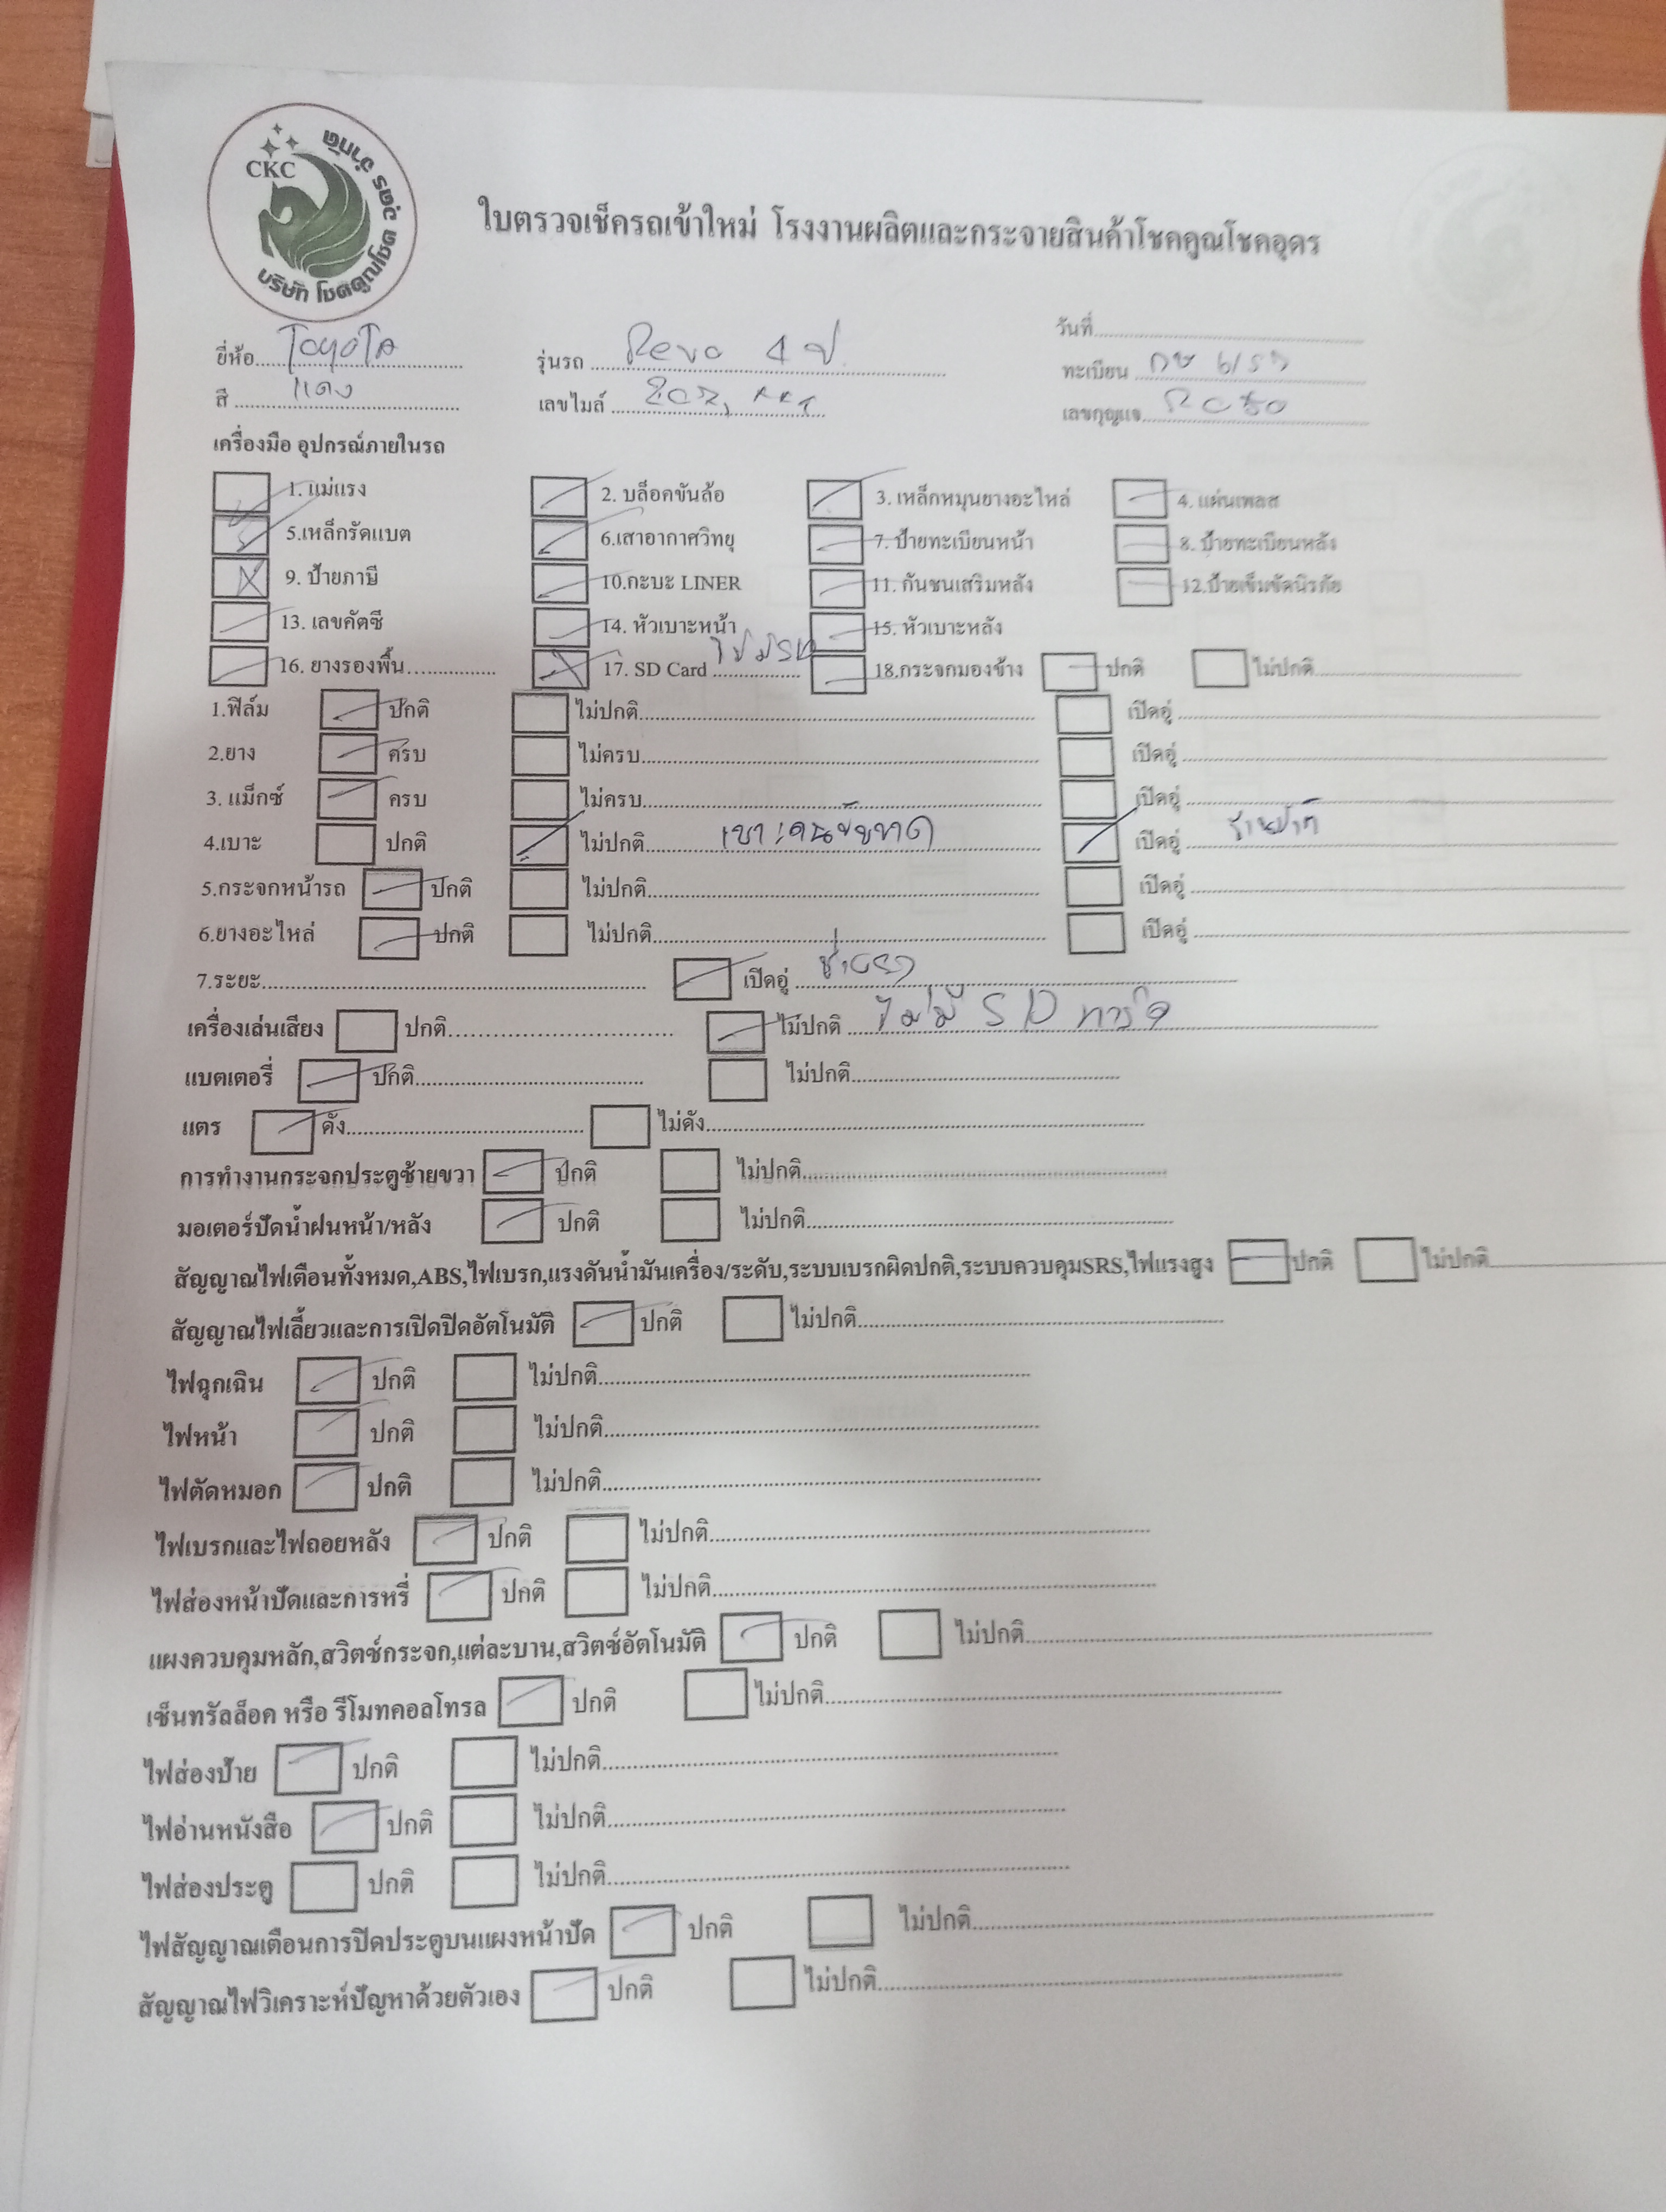 CKC
บริษัท โชคคูณโชค อุดร จำกัด
ใบตรวจเช็ครถเข้าใหม่ โรงงานผลิตและกระจายสินค้าโชคคูณโชคอุดร
วันที่
ยี่ห้อ TOYOTA รุ่นรถ Revo 4 ป. ทะเบียน
สี แดง เลขไมล์ เลขกุญแจ
เครื่องมือ อุปกรณ์ภายในรถ
1. แม่แรง 2. บล็อคขันล้อ 3. เหล็กหมุนยางอะไหล่ 4. แผ่นเพลส
5.เหล็กรัดแบต 6.เสาอากาศวิทยุ 7. ป้ายทะเบียนหน้า 8. ป้ายทะเบียนหลัง
9. ป้ายภาษี 10.กะบะ LINER 11. กันชนเสริมหลัง 12.ป้ายเข็มขัดนิรภัย
13. เลขคัตซี 14. หัวเบาะหน้า 15. หัวเบาะหลัง
16. ยางรองพื้น 17. SD Card 18.กระจกมองข้าง ปกติ ไม่ปกติ
1.ฟิล์ม ปกติ ไม่ปกติ เปิดอู่
2.ยาง ครบ ไม่ครบ เปิดอู่
3. แม็กซ์ ครบ ไม่ครบ เปิดอู่
4.เบาะ ปกติ ไม่ปกติ เปิดอู่
5.กระจกหน้ารถ ปกติ ไม่ปกติ เปิดอู่
6.ยางอะไหล่ ปกติ ไม่ปกติ เปิดอู่
7.ระยะ เปิดอู่
เครื่องเล่นเสียง ปกติ ไม่ปกติ ไม่มี SD การ์ด
แบตเตอรี่ ปกติ ไม่ปกติ
แตร ดัง ไม่ดัง
การทำงานกระจกประตูซ้ายขวา ปกติ ไม่ปกติ
มอเตอร์ปัดน้ำฝนหน้า/หลัง ปกติ ไม่ปกติ
สัญญาณไฟเตือนทั้งหมด,ABS,ไฟเบรก,แรงดันน้ำมันเครื่อง/ระดับ,ระบบเบรกผิดปกติ,ระบบควบคุมSRS,ไฟแรงสูง ปกติ ไม่ปกติ
สัญญาณไฟเลี้ยวและการเปิดปิดอัตโนมัติ ปกติ ไม่ปกติ
ไฟฉุกเฉิน ปกติ ไม่ปกติ
ไฟหน้า ปกติ ไม่ปกติ
ไฟตัดหมอก ปกติ ไม่ปกติ
ไฟเบรกและไฟถอยหลัง ปกติ ไม่ปกติ
ไฟส่องหน้าปัดและการหรี่ ปกติ ไม่ปกติ
แผงควบคุมหลัก,สวิตซ์กระจก,แต่ละบาน,สวิตซ์อัตโนมัติ ปกติ ไม่ปกติ
เซ็นทรัลล็อค หรือ รีโมทคอลโทรล ปกติ ไม่ปกติ
ไฟส่องป้าย ปกติ ไม่ปกติ
ไฟอ่านหนังสือ ปกติ ไม่ปกติ
ไฟส่องประตู ปกติ ไม่ปกติ
ไฟสัญญาณเตือนการปิดประตูบนแผงหน้าปัด ปกติ ไม่ปกติ
สัญญาณไฟวิเคราะห์ปัญหาด้วยตัวเอง ปกติ ไม่ปกติ